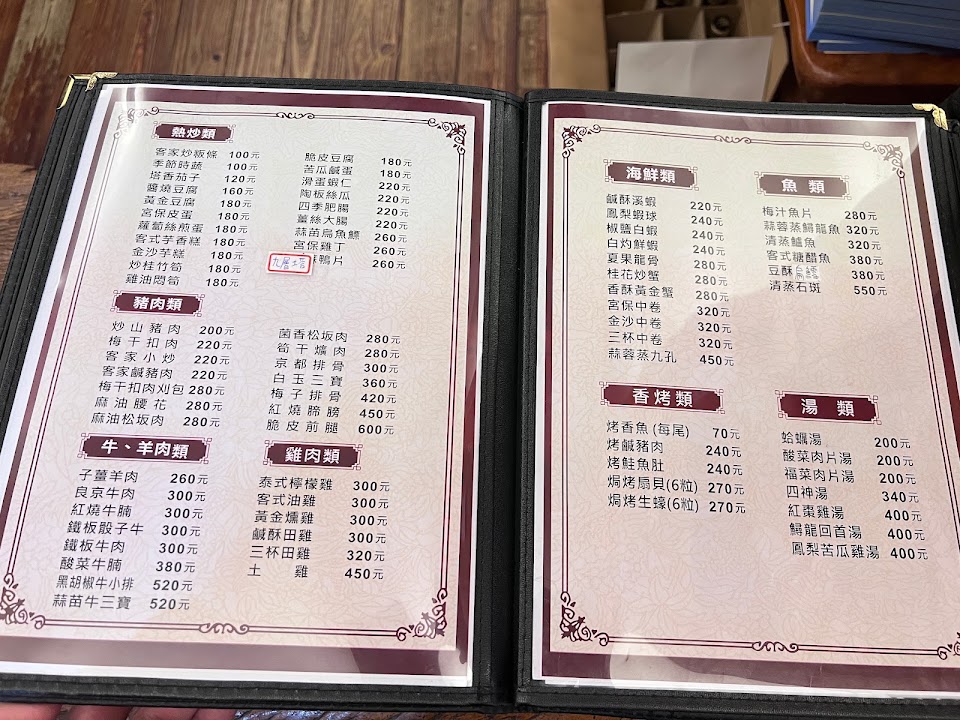 熱炒類
客家炒粄條 100元
季節時蔬 100元
塔香茄子 120元
醬燒豆腐 160元
黃金豆腐 180元
宮保皮蛋 180元
蘿蔔絲煎蛋 180元
客式芋香糕 180元
金沙芋糕 180元
炒桂竹筍 180元
雞油悶筍 180元
脆皮豆腐 180元
苦瓜鹹蛋 180元
滑蛋蝦仁 220元
陶板絲瓜 220元
四季肥腸 220元
薑絲大腸 220元
蒜苗烏魚鰾 260元
宮保雞丁 260元
酥鴨片 260元
豬肉類
炒山豬肉 200元
梅干扣肉 220元
客家小炒 220元
客家鹹豬肉 220元
梅干扣肉刈包 280元
麻油腰花 280元
麻油松坂肉 280元
菌香松坂肉 280元
筍干爌肉 280元
京都排骨 300元
白玉三寶 360元
梅子排骨 420元
紅燒蹄膀 450元
脆皮前腿 600元
牛、羊肉類
子薑羊肉 260元
良京牛肉 300元
紅燒牛腩 300元
鐵板骰子牛 300元
鐵板牛肉 300元
酸菜牛腩 380元
黑胡椒牛小排 520元
蒜苗牛三寶 520元
雞肉類
泰式檸檬雞 300元
客式油雞 300元
黃金燻雞 300元
鹹酥田雞 300元
三杯田雞 320元
土雞 450元
海鮮類
鹹酥溪蝦 220元
鳳梨蝦球 240元
椒鹽白蝦 240元
白灼鮮蝦 240元
夏果龍骨 280元
桂花炒蟹 280元
香酥黃金蟹 280元
宮保中卷 320元
金沙中卷 320元
三杯中卷 320元
蒜蓉蒸九孔 450元
魚類
梅汁魚片 280元
蒜蓉蒸鱘龍魚 320元
清蒸鱸魚 320元
客式糖醋魚 380元
豆酥 380元
清蒸石斑 550元
香烤類
烤香魚(每尾) 70元
烤鹹豬肉 240元
烤鮭魚肚 240元
焗烤扇貝(6粒) 270元
焗烤生蠔(6粒) 270元
湯類
蛤蠣湯 200元
酸菜肉片湯 200元
福菜肉片湯 200元
四神湯 340元
紅棗雞湯 400元
鱘龍回首湯 400元
鳳梨苦瓜雞湯 400元